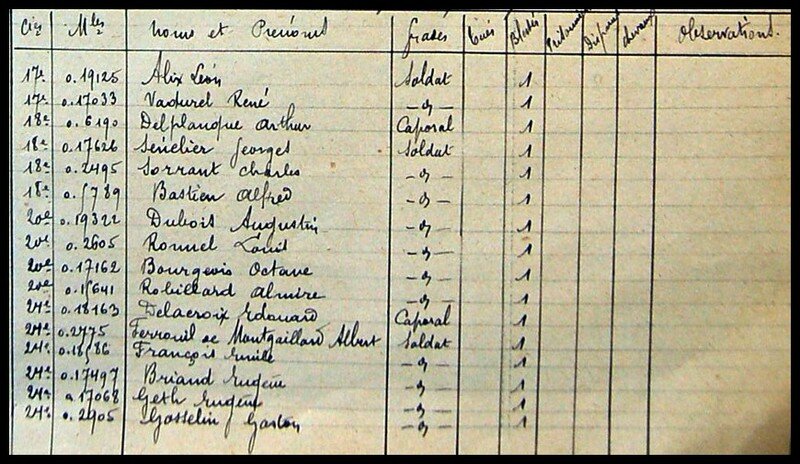 Cies Mles Noms et Prénoms Grades Tués Blessés Prisonn Disparus chevaux Observations.
17e 0.19125 Alix Léon Soldat 1
17e 0.17033 Vadurel René -d- 1
18e 0.6190 Delplanque Arthur Caporal 1
18e 0.17626 Sénélier Georges Soldat 1
18e 0.2495 Sorrant Charles -d- 1
18e Bastien Alfred -d- 1
20e 0.19322 Dubois Augustin -d- 1
20e 0.2605 Rommel Louis -d- 1
20e 0.17162 Bourgeois Octave -d- 1
20e Robillard Almire -d- 1
24e 0.18163 Delacroix Edouard Caporal 1
24e 0.2775 Ferrouil de Montgaillard Albert Soldat 1
24e François Emile -d- 1
24e 0.17497 Briand Eugène -d- 1
24e 0.17068 Geth Eugène -d- 1
24e 0.2905 Gosselin Gaston -d- 1